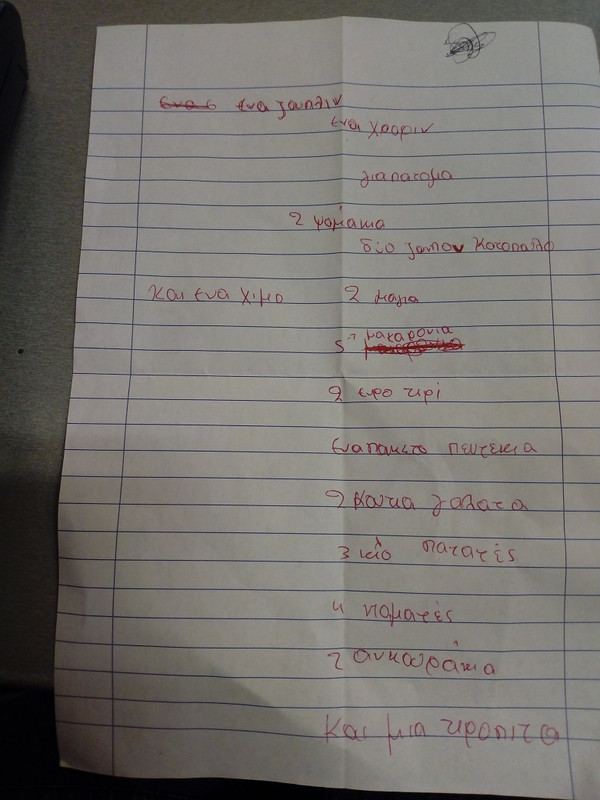 ενα ζαμπλιν
ενα χαοριν
λιαπατομα
2 ψομάκια
διο ζαπον κοτοπολο
και ενα χιμο 2 μαγια
5 μακαρονια
2 ερο τιρί
ενα πακετο πευτεκια
2 κουτια γαλατα
3 κιλο πατατές
4 ποματές
2 ανκουράκια
και μια τιροπιτα